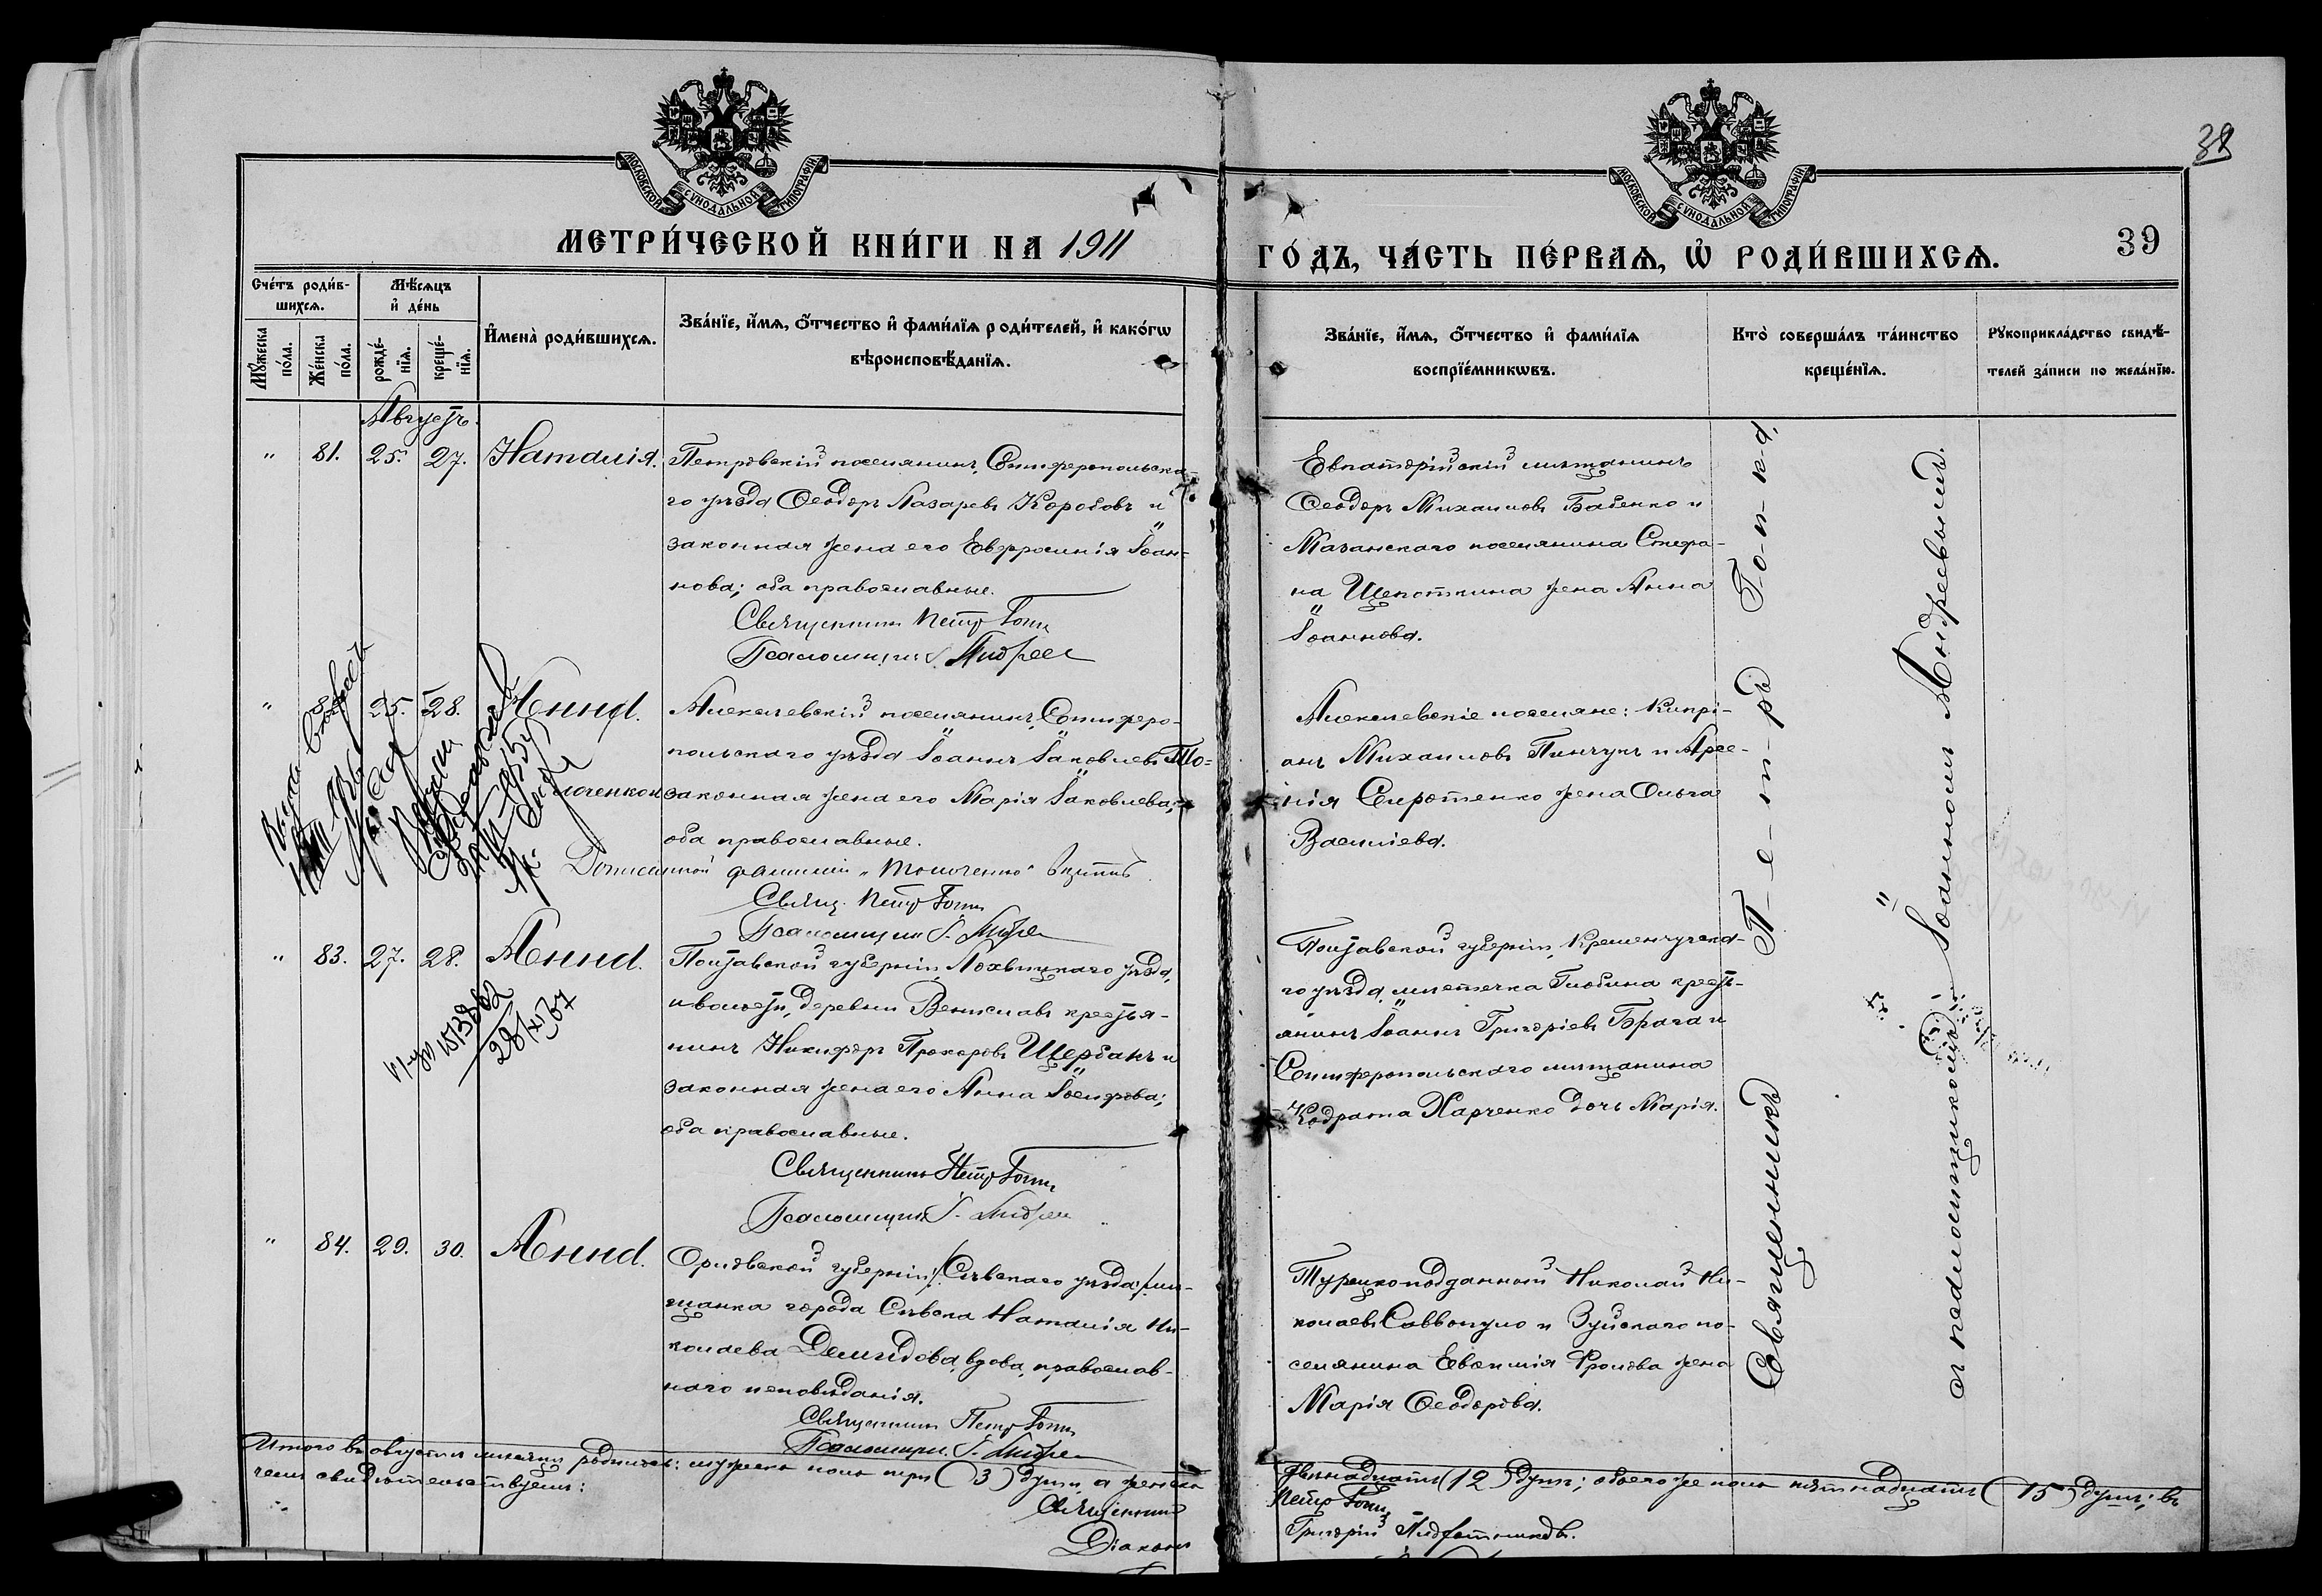 МОСКОВСКОЙ СѴНОДАЛЬНОЙ ТИПОГРАФІИ
МОСКОВСКОЙ СѴНОДАЛЬНОЙ ТИПОГРАФІИ
38
МЕТРИ́ЧЕСКОЙ КНИ́ГИ НА 1911
ГО́ДЪ, ЧА́СТЬ ПЕ́РВАѦ, Ѡ҆ РОДИ́ВШИХСѦ.
39
Сче́тъ роди́в-
шихсѧ.
Мѣ́сѧцъ
и҆ де́нь
Мꙋ́жеска
по́ла.
Же́нска
по́ла.
рожде́-
нїѧ.
креще́-
нїѧ.
И҆мена̀ роди́вшихсѧ.
Зва́нїе, и҆́мѧ, ѻ҆́тчество и҆ фами́лїѧ роди́телей, и҆ како́гѡ
вѣроисповѣ́данїѧ.
Зва́нїе, и҆́мѧ, ѻ҆́тчество и҆ фами́лїѧ
воспрїе́мникѡвъ.
Кто̀ соверша́лъ та́инство
креще́нїѧ.
Рꙋкоприкла́дство свидѣ́-
телей за́писи по жела́нїю.
Августъ.
" 81. 25. 27. Наталія.
Петровскій поселянинъ, Симферопольска-
го уѣзда Ѳеодоръ Лазаревъ Коробовъ и
законная жена его Евфросинія Іоан-
нова; оба православные.
Священникъ Петръ Гопк
Псаломщикъ І. Андрее
Евпаторійскій мѣщанинъ
Ѳеодоръ Михаиловъ Бабенко и
Мазанскаго поселянина Стефа-
на Щепоткина жена Анна
Іоаннова.
" 82. 25. 28. Анна.
Алексѣевскій поселянинъ, Симферо-
польскаго уѣзда Іоаннъ Іаковлевъ То-
законная жена его Марія Іаковлева;
оба православные.
Священ. Петръ Гопк
Псаломщикъ І. Андре
Алексѣевскіе поселяне: Кипрі-
анъ Михаиловъ Пинчукъ и Арсе-
нія Сиротенко жена Ольга
Василіева.
" 83. 27. 28. Анна.
Полтавской губерніи, Лохвицкаго уѣзда,
и волости, деревни Венислав крестья-
нинъ Никифоръ Прохоровъ Щербакъ и
законная жена его Анна
оба православные.
Священникъ Петръ Гопк
Псаломщикъ І. Андрее
Полтавской губерніи, Кременчугска-
го уѣзда, мѣстечка Глобина кресть-
янинъ Іоаннъ Григоріевъ Брага и
Симферопольскаго мѣщанина
Кодрата Харченко дочь Марія.
" 84. 29. 30. Анна.
Орловской губерніи /Сѣвскаго уѣзда/ мѣ-
щанка города Сѣвска Наталія Ни-
колаева Демидова, вдова, православ-
наго исповѣданія.
Священникъ Петръ Гопк
Псаломщикъ І. Андре
Турецкоподданный Николай Ни-
колаевъ Саввопуло и Зуйскаго по-
селянина Евѳимія Фролова жена
Марія Ѳеодорова.
Священникъ Петръ Гопка,
съ псаломщикомъ Іоанномъ Андреевымъ.
Итого въ августѣ мѣсяцѣ родилось: мужеска пола три (3) души, а женска
двѣнадцать (12) душъ; обоего же пола пятнадцать (15) душъ; въ
чемъ свидѣтельствуемъ:
Священникъ Петръ Гопк
Діаконъ Григорій